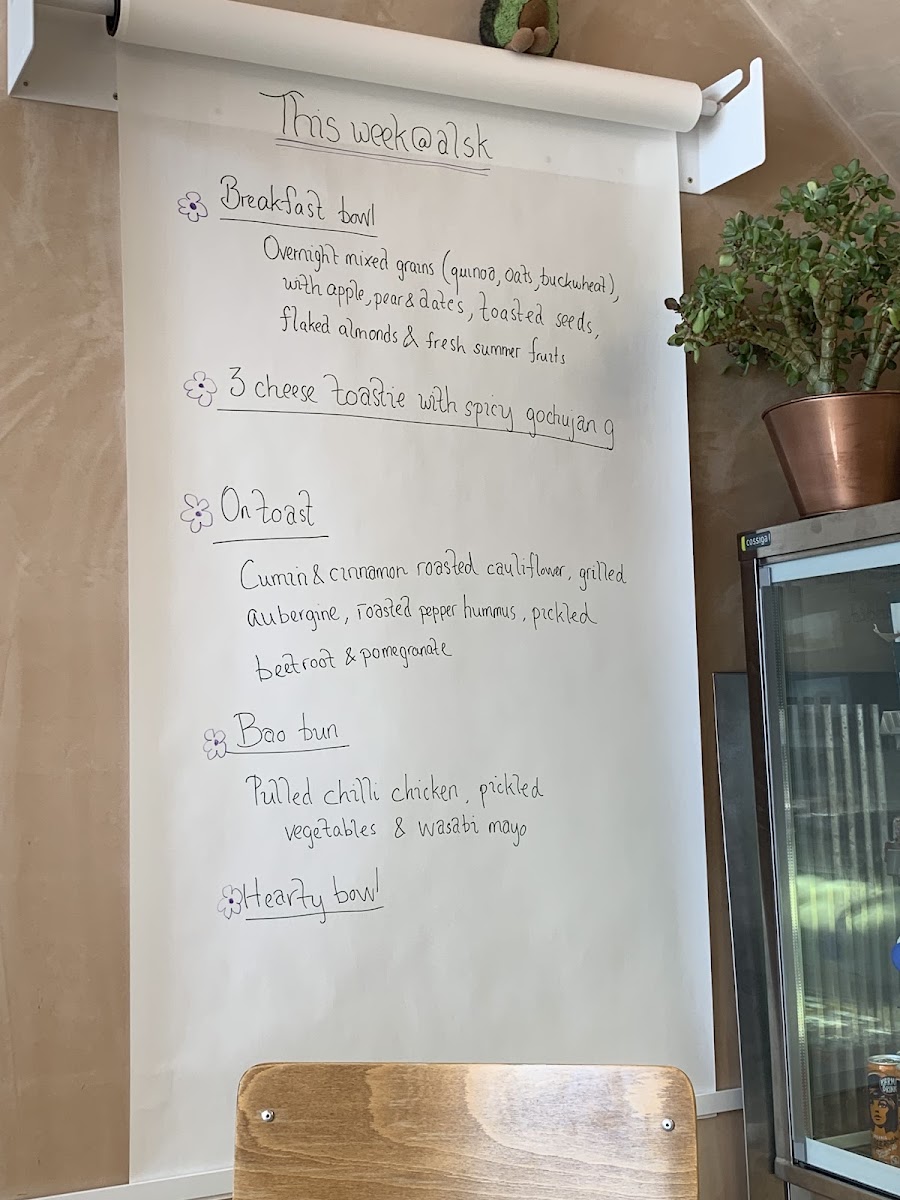 This week@alsk
Breakfast bowl
Overnight mixed grains (quinoa, oats, buckwheat),
with apple, pear & dates, toasted seeds,
flaked almonds & fresh summer fruits
3 cheese toastie with spicy gochujang
On toast
Cumin & cinnamon roasted cauliflower, grilled
aubergine, roasted pepper hummus, pickled
beetroot & pomegranate
Bao bun
Pulled chilli chicken, pickled
vegetables & wasabi mayo
Hearty bowl
cossiga